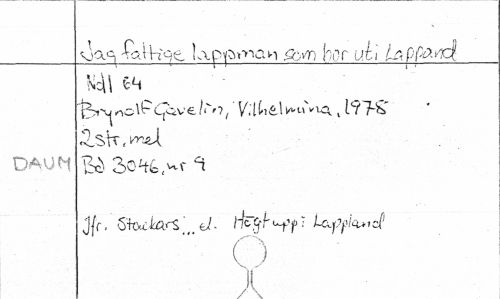 Jag fattige lappman som bor uti Lappand
Ndl 64
Brynolf Gavelin, Vilhelmina, 1978
2str, mel
DAUM Bd 3046, nr 9
Jfr. Stackars... el. Högt upp i Lappland